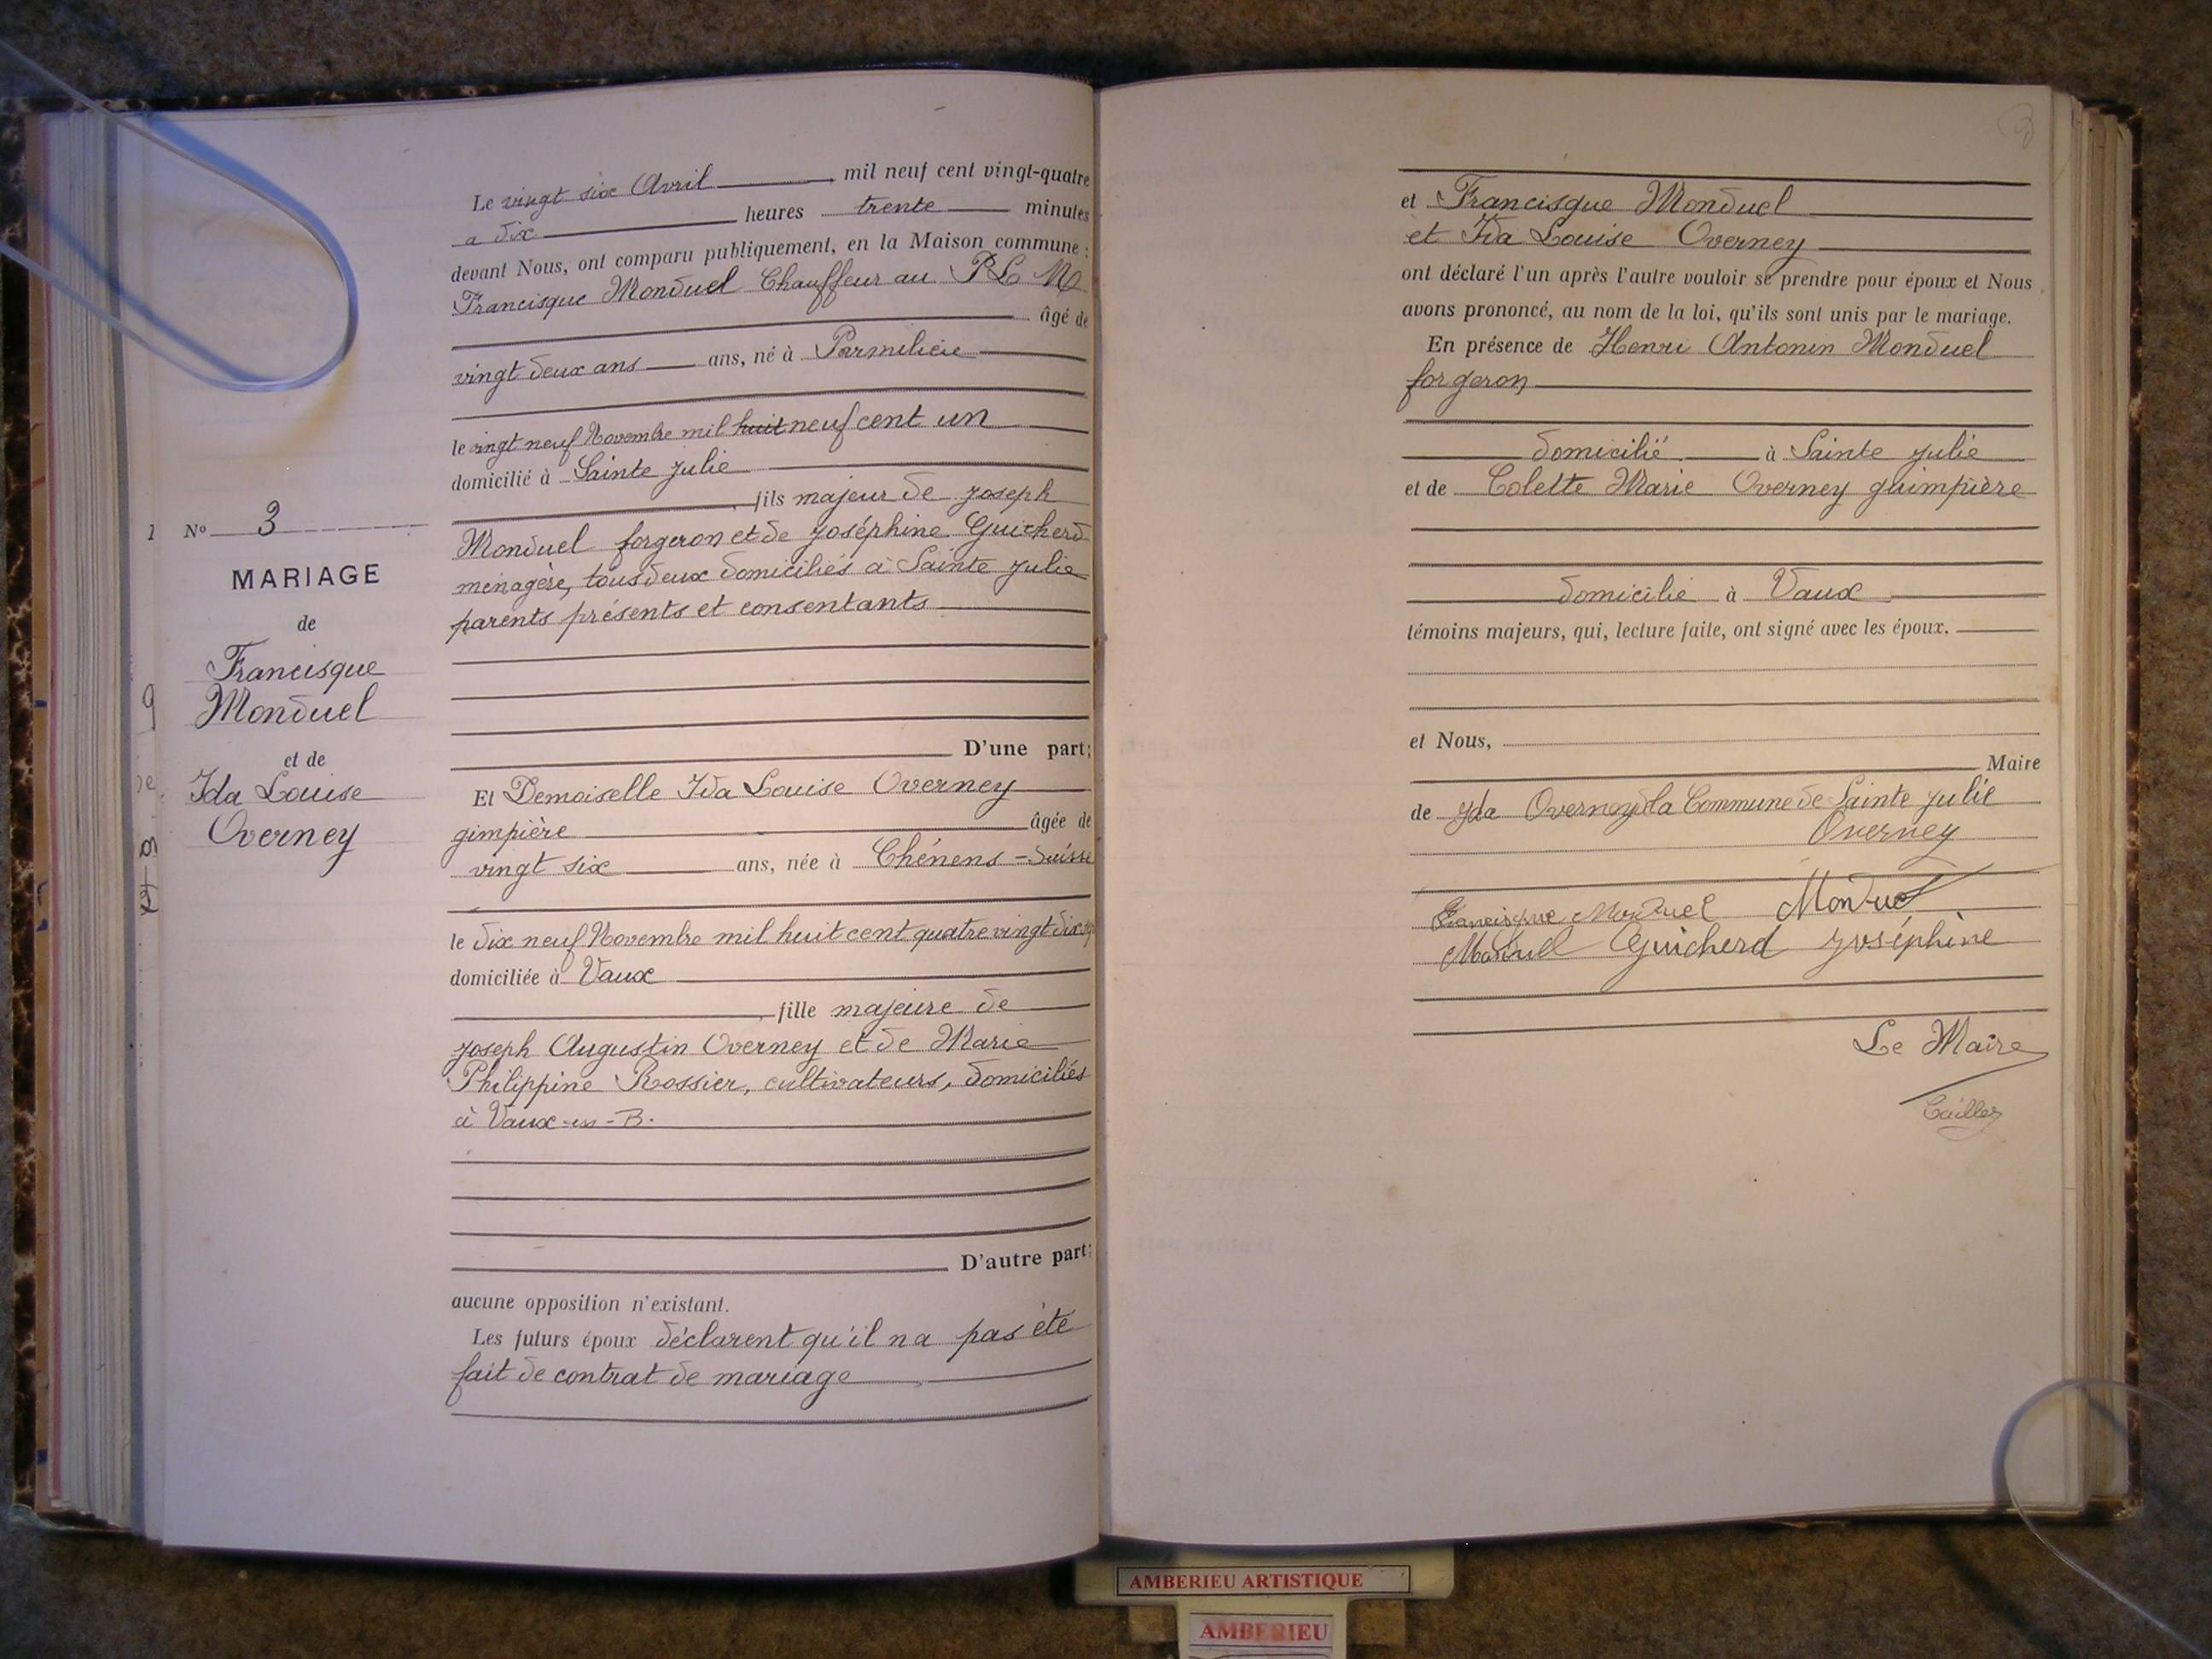 N° 3
MARIAGE
de
Francisque
Monduel
et de
Ida Louise
Overney
Le vingt six Avril mil neuf cent vingt-quatre
a dix heures trente minutes
devant Nous, ont comparu publiquement, en la Maison commune :
Francisque Monduel Chauffeur au P L M
âgé de
vingt deux ans ans, né à Parmilieu
le vingt neuf Novembre mil huit neuf cent un
domicilié à Sainte Julie
fils majeur de Joseph
Monduel forgeron et de Joséphine Guicherd
ménagère, tous deux domiciliés à Sainte Julie
parents présents et consentants
D'une part;
Et Demoiselle Ida Louise Overney
gimpière âgée de
vingt six ans, née à Chénens - Suisse
le dix neuf Novembre mil huit cent quatre vingt dix sept
domiciliée à Vaux
fille majeure de
Joseph Augustin Overney et de Marie
Philippine Rossier, cultivateurs, domiciliés
à Vaux-en-B.
D'autre part;
aucune opposition n'existant.
Les futurs époux déclarent qu'il n a pas été
fait de contrat de mariage
et Francisque Monduel
et Ida Louise Overney
ont déclaré l'un après l'autre vouloir se prendre pour époux et Nous
avons prononcé, au nom de la loi, qu'ils sont unis par le mariage.
En présence de Henri Antonin Monduel
forgeron
domicilié à Sainte Julie
et de Colette Marie Overney guimpière
domicilié à Vaux
témoins majeurs, qui, lecture faite, ont signé avec les époux.
et Nous,
Maire
de Ida Overney de la Commune de Sainte Julie
Overney
Francisque Monduel Monduel
Monduel Guicherd Joséphine
Le Maire
AMBERIEU ARTISTIQUE
AMBERIEU